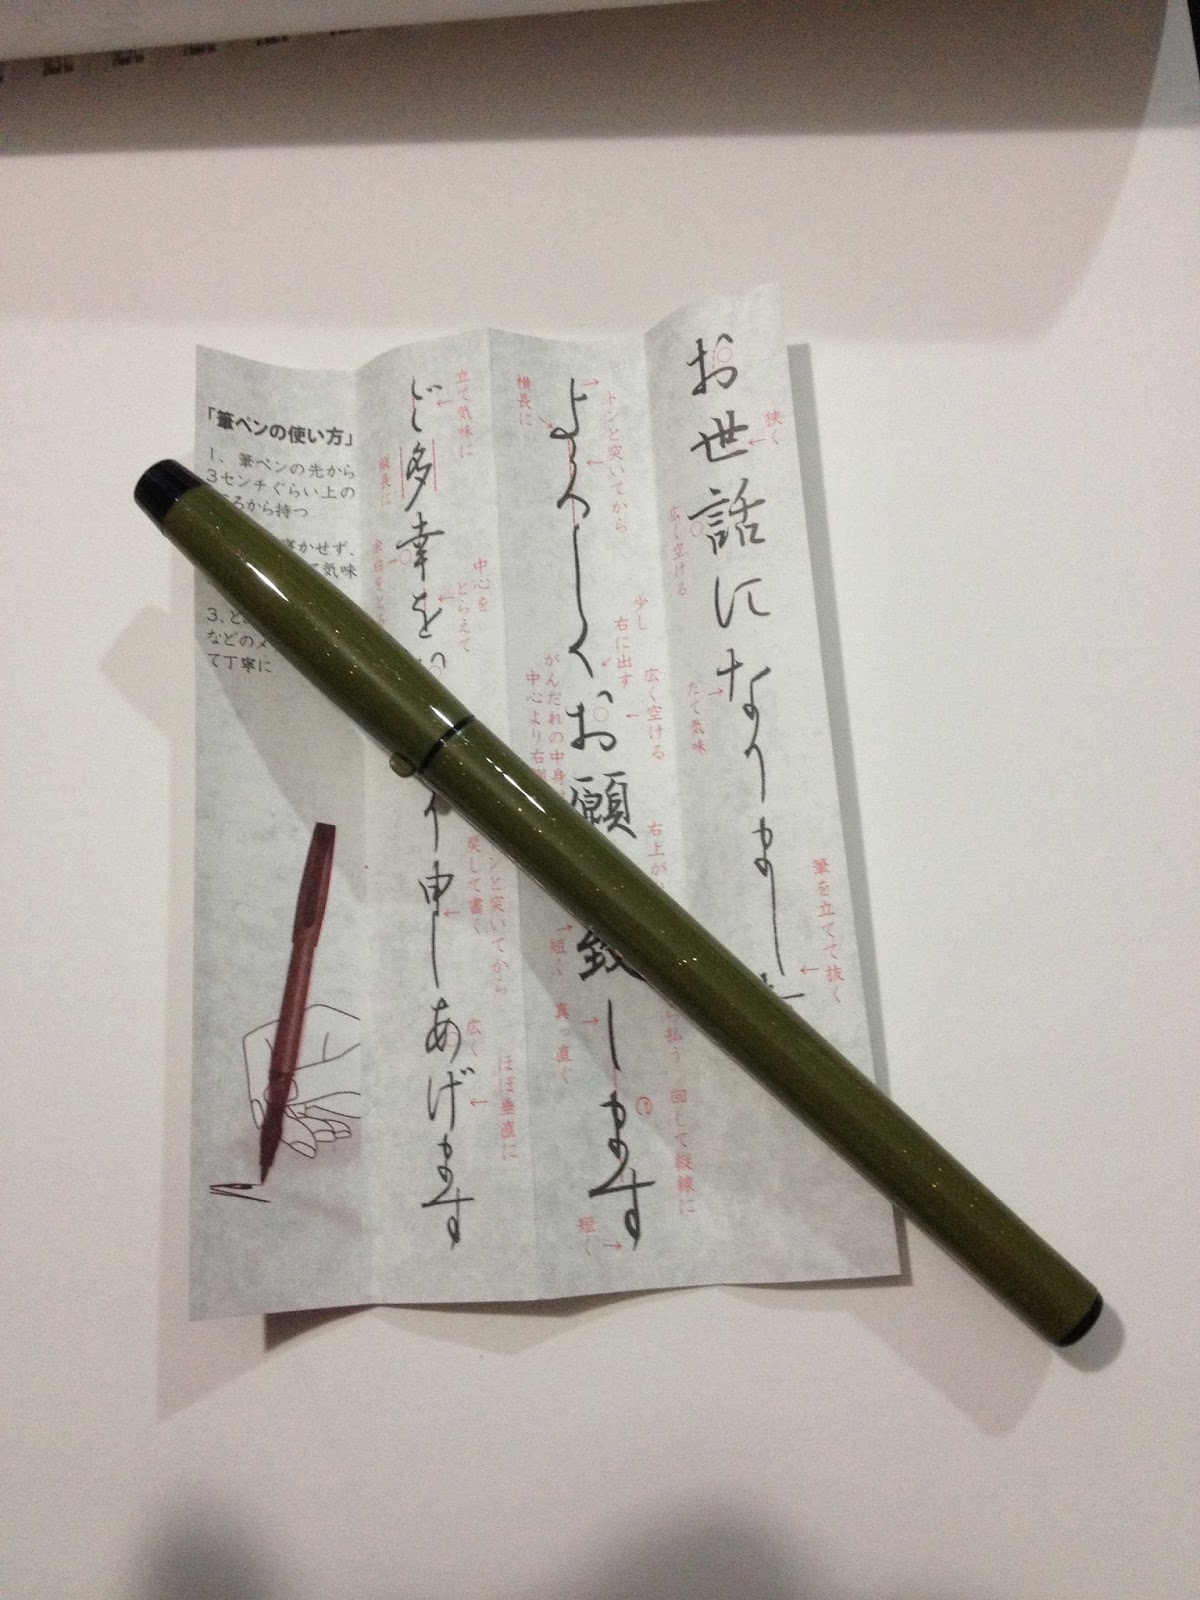 お世話になりました
狭く
広く空ける
たて気味
筆を立てて抜く
よろしくお願 致します
横長に
トンと突いてから
少し
右に出す
広く空ける
がんだれの中身
中心より右
右上が
短く
真っ直ぐ
払う
回して縦線に
短く
ご多幸を
申しあげます
立て気味に
縦長に
中心を
とらえて
余白をとる
ンと突いてから
戻して書く
広く
ほぼ垂直に
「筆ペンの使い方」
1、筆ペンの先から
3センチぐらい上の
ころから持つ
寝かせず、
て気味
3、と
などのメ
て丁寧に